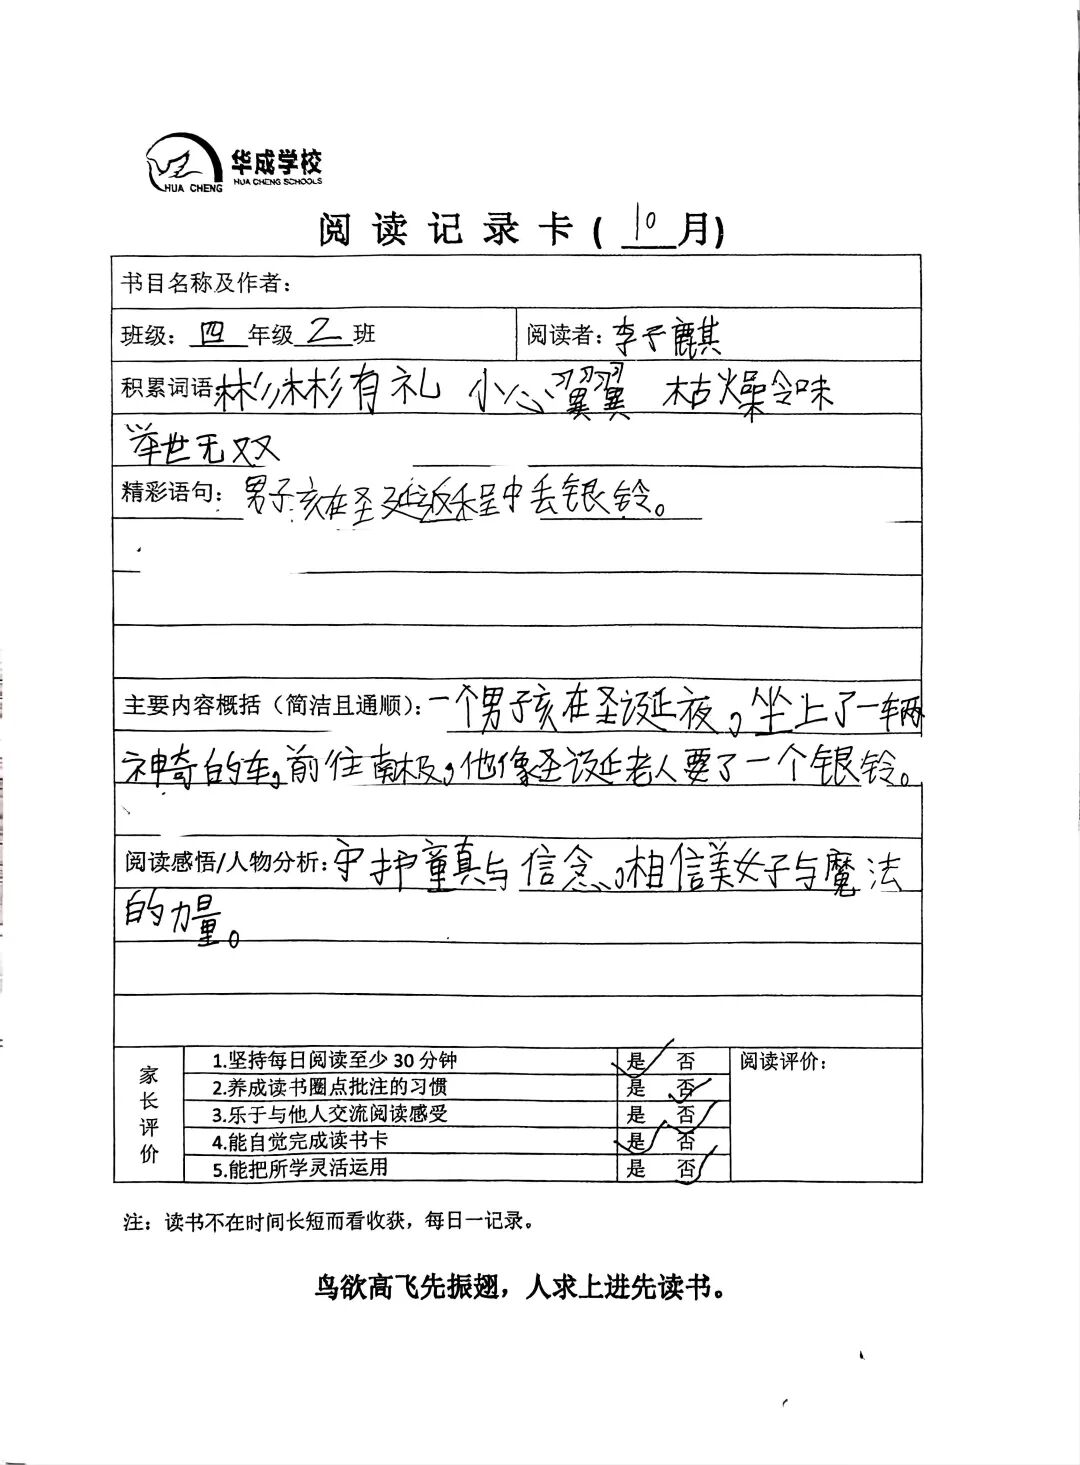 华成学校
HUA CHENG HUA CHENG SCHOOLS
阅读记录卡(10月)
书目名称及作者:
班级: 四 年级 2 班 阅读者: 李子麒
积累词语: 彬彬有礼 小心翼翼 枯燥冷味
举世无双
精彩语句: 男子亥在圣延返程中丢银铃。
主要内容概括(简洁且通顺): 一个男子亥在圣诞夜,坐上了一辆
神奇的车,前往南极,他像圣诞老人要了一个银铃。
阅读感悟/人物分析: 守护童真与信念,相信美好与魔法
的力量。
家长评价
1.坚持每日阅读至少30分钟 是✓ 否
2.养成读书圈点批注的习惯 是 否✓
3.乐于与他人交流阅读感受 是 否✓
4.能自觉完成读书卡 是✓ 否
5.能把所学灵活运用 是 否✓
阅读评价:
注: 读书不在时间长短而看收获,每日一记录。
鸟欲高飞先振翅,人求上进先读书。